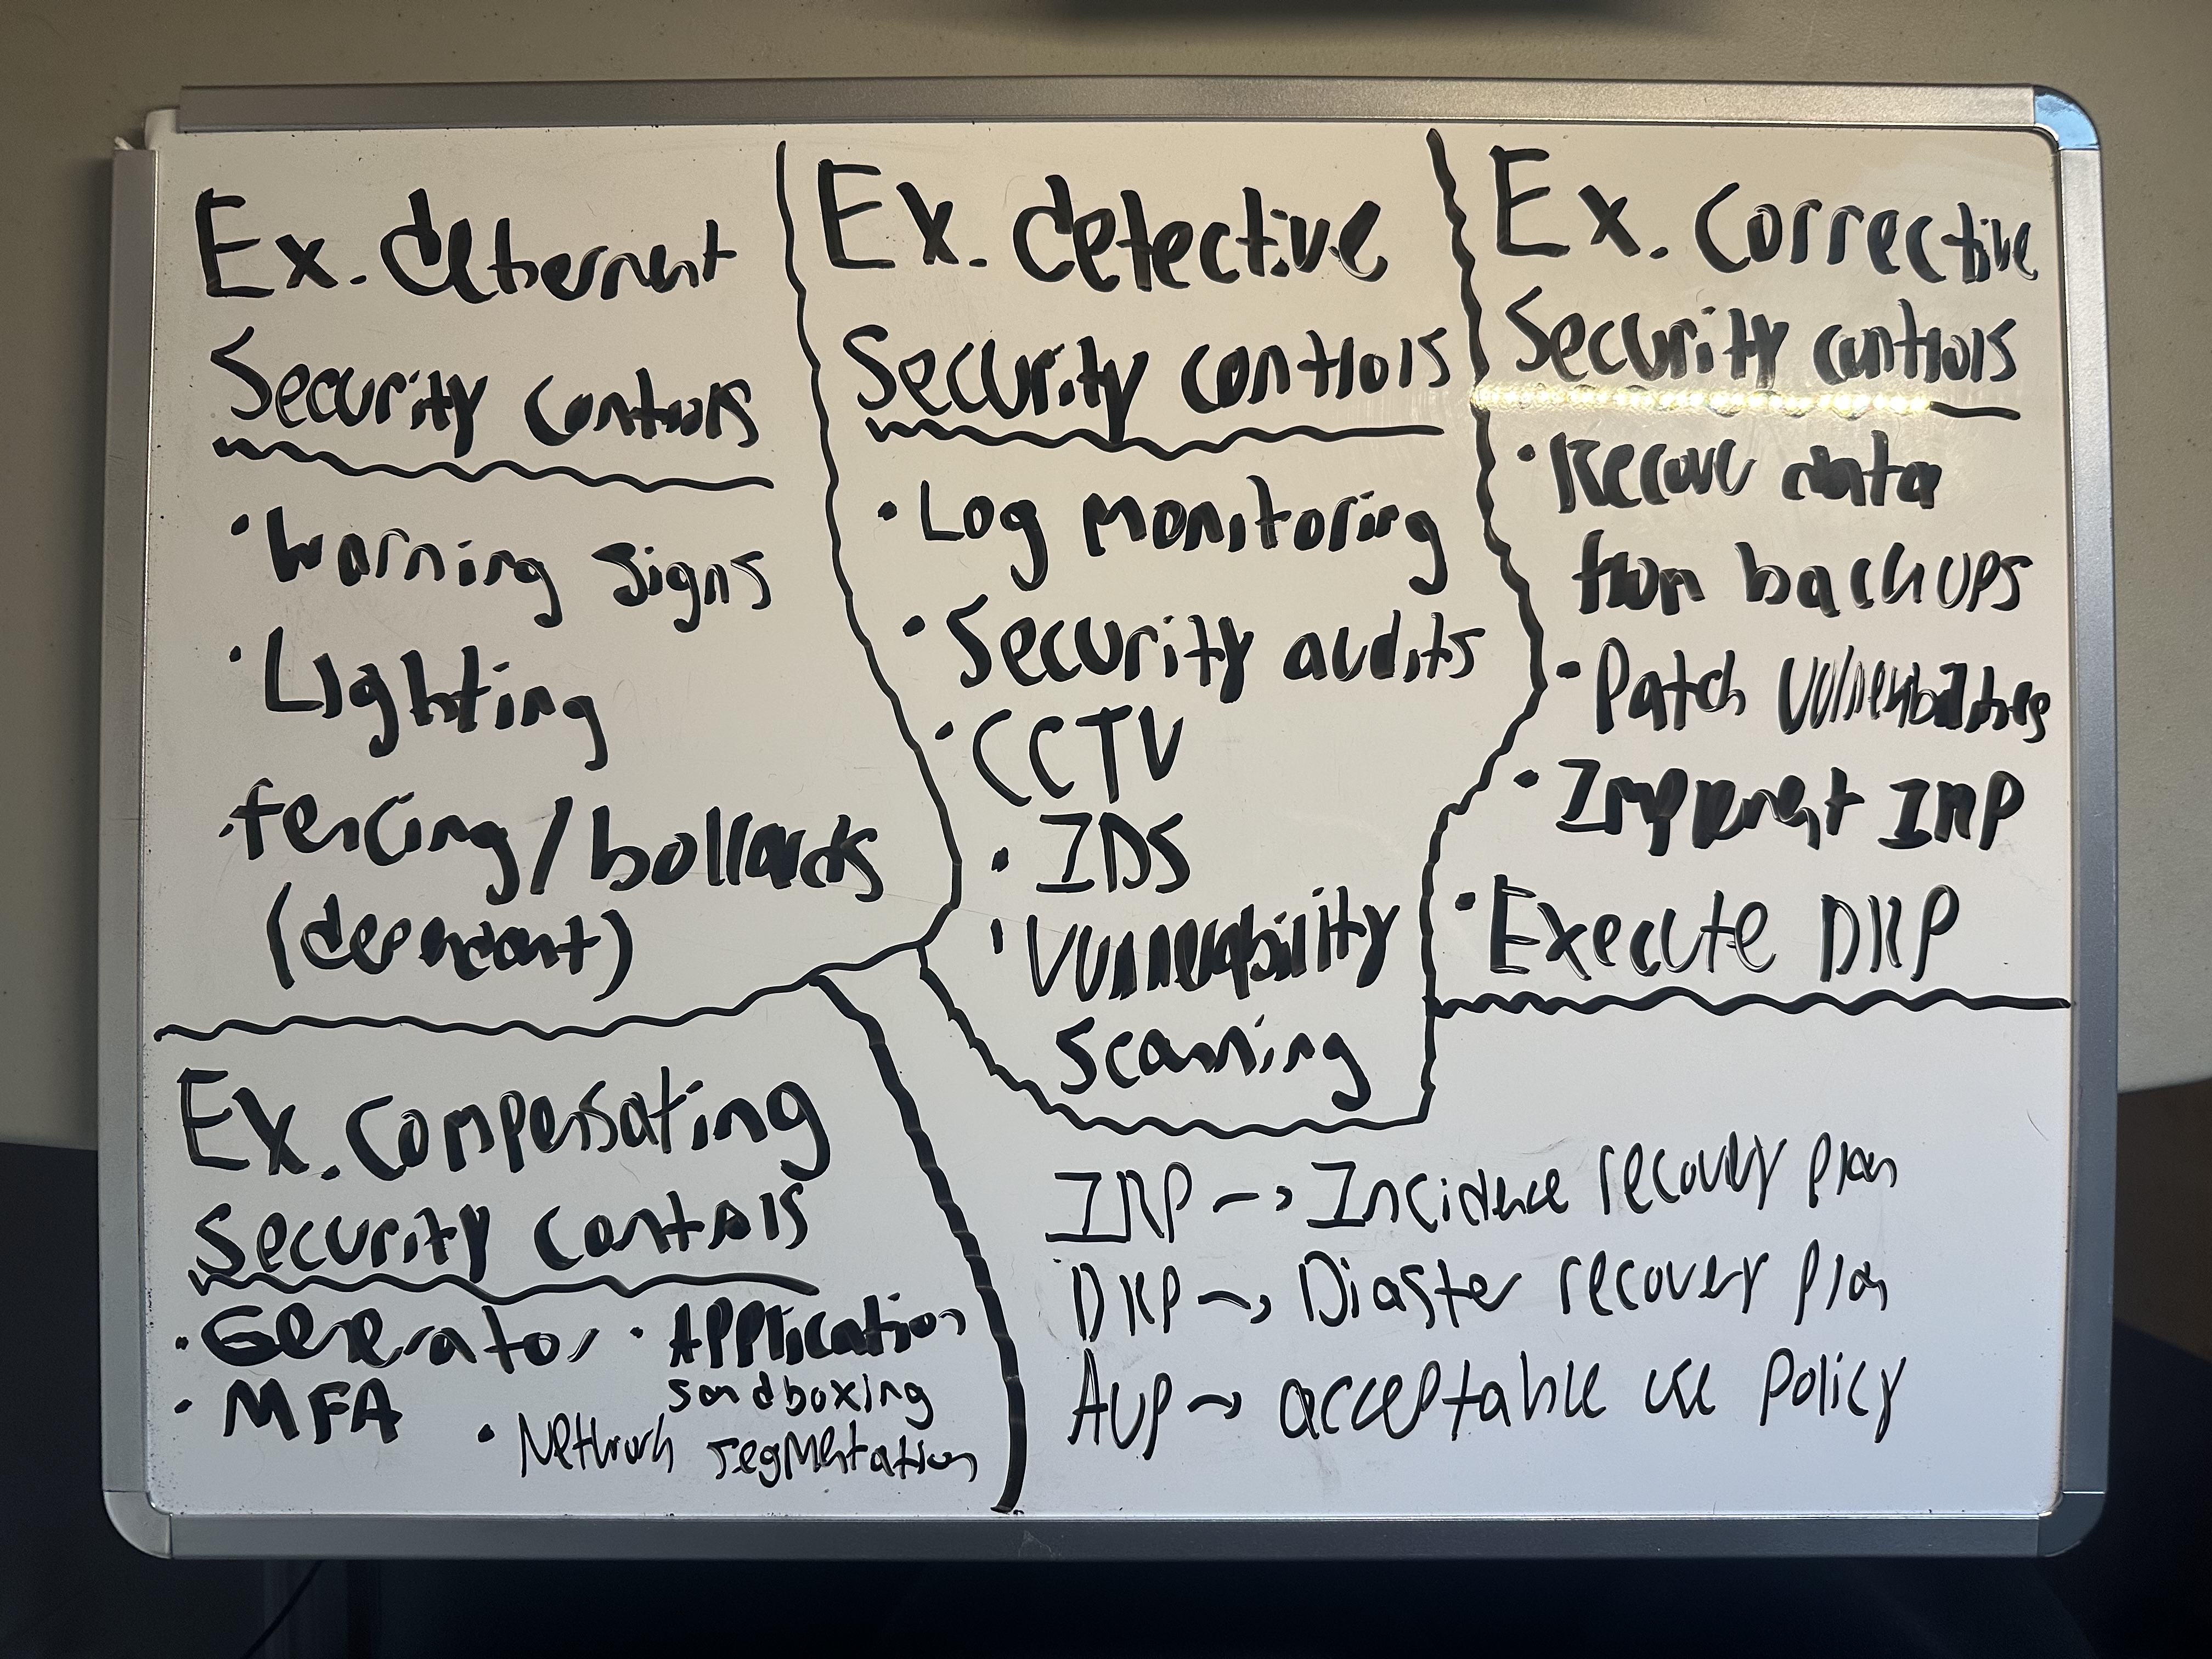 Ex. deterrent
Security controls
• Warning signs
• Lighting
• fencing/bollards
(dependant)
Ex. detective
Security controls
• Log monitoring
• Security audits
• CCTV
• IDS
• Vulnerability
scanning
Ex. Corrective
Security controls
• Recover data
from backups
• Patch vulnerabilities
• Implement IRP
• Execute DRP
Ex. Compensating
Security controls
• Generator • Application
sandboxing
• MFA
• Network segmentation
IRP -> Incidence recovery plan
DRP -> Diaster recovery plan
AUP -> acceptable use policy